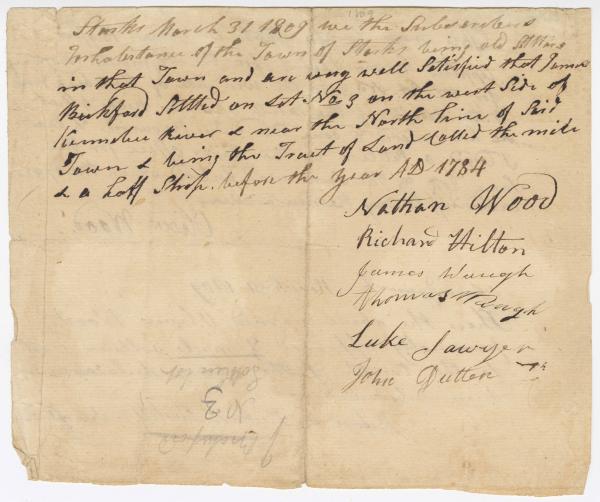 1809
Starks March 31 1809 we the Subscribers
Inhabitance of the Town of Starks being old Settlers
in that Town and are very well Satisfied that James
Bickford Settled on Lot No 3 on the west Side of
Kennebec River & near the North line of Said
Town & being the Tract of Land Called the mile
& a half Strip. before the year AD 1784
Nathan Wood
Richard Hilton
James Waugh
Thomas Waugh
Luke Sawyer
John Dutten
No 3
J Bickford